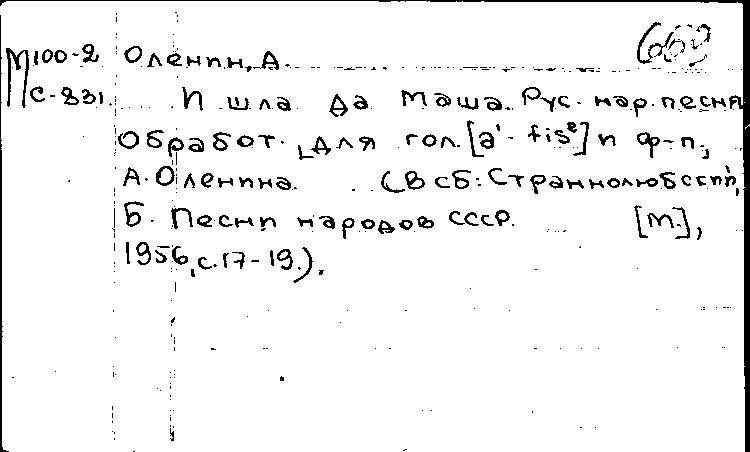 669
М100-2 Оленин, А.
С-831. И шла да Маша. Рус. нар. песня
Обработ. для гол. [a¹-fis²] и ф-п.,
А. Оленина. (В сб: Страннолюбский,
Б. Песни народов СССР. [М.],
1956, с. 17-19.).